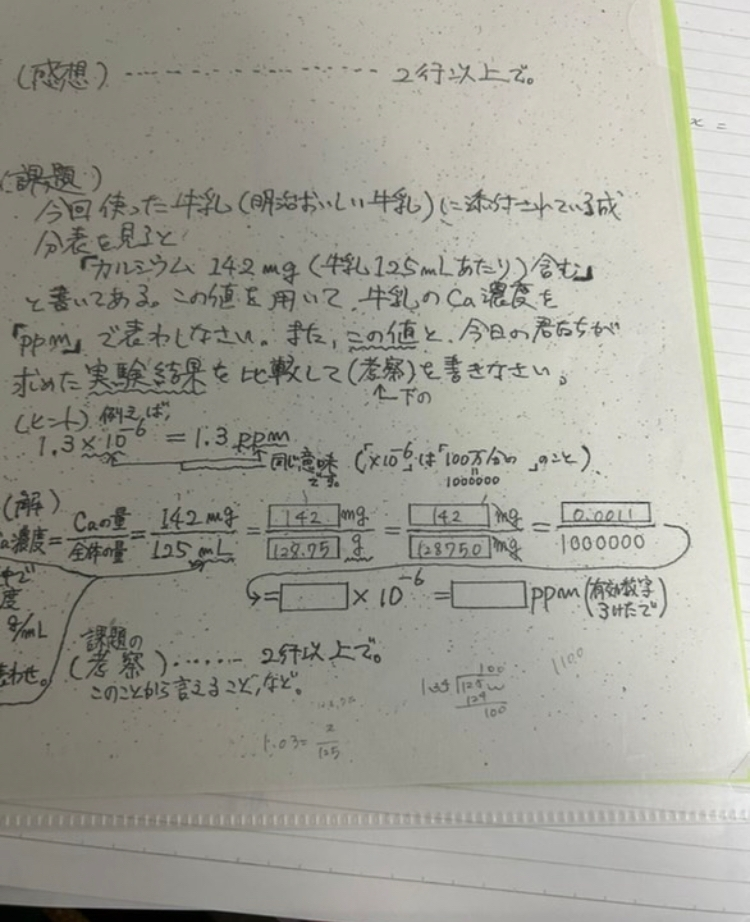 (感想) ------------------ 2行以上で。
x =
(課題)
今回使った牛乳(明治おいしい牛乳)に添付されている成
分表を見ると
「カルシウム 142mg(牛乳125mLあたり)含む」
と書いてある。この値を用いて、牛乳のCa濃度を
「ppm」で表わしなさい。また、この値と、今日の君たちが
求めた実験結果を比較して(考察)を書きなさい。
↑下の
(ヒント) 例えば、
1.3×10⁻⁶ = 1.3 ppm
同じ意味です。(「×10⁻⁶」は「100万分の 」のこと)
1000000
(解)
Ca濃度 = Caの量/全体の量 = 142mg/125mL = 142mg/128.75g = 142mg/128750mg = 0.0011/1000000
→= □ ×10⁻⁶ = □ ppm (有効数字3けたで)
度
g/mL
課題の
(考察)…… 2行以上で。
このことから言えること,など。
1100
1.03= 
125
100